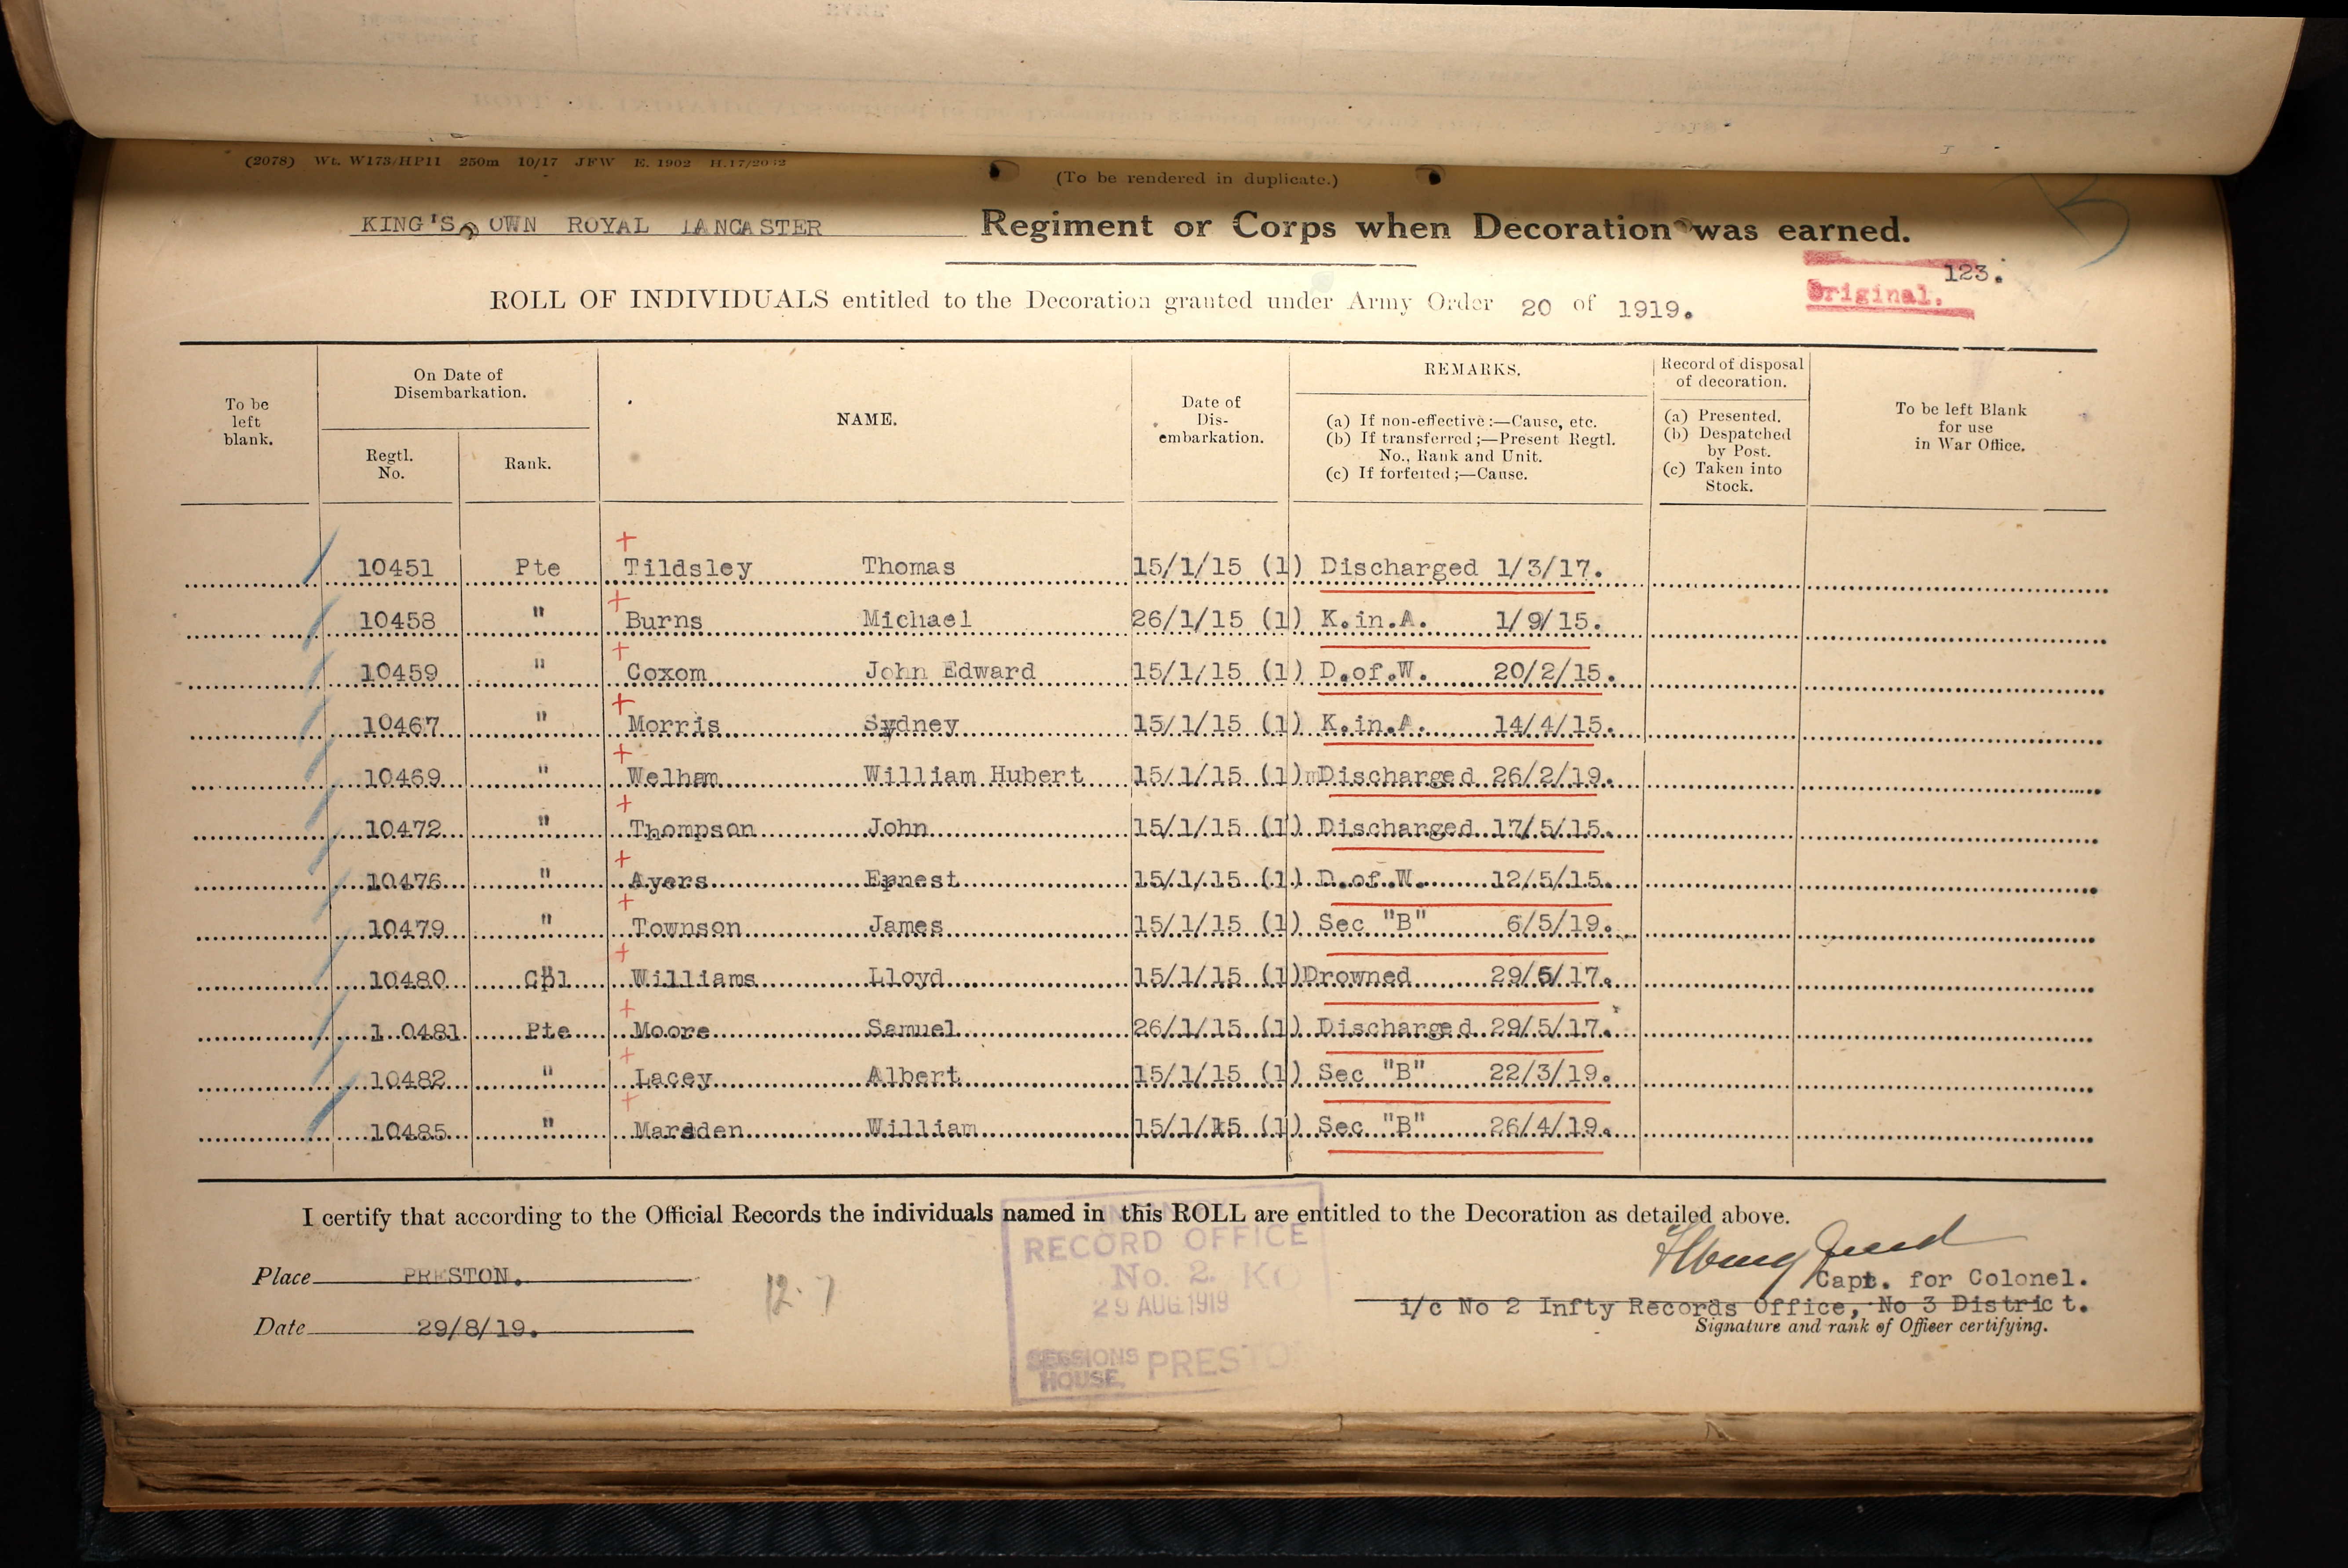 (2078) Wt. W173/HP11 250m 10/17 JFW E. 1902 H.17/2032
(To be rendered in duplicate.)
KING'S OWN ROYAL LANCASTER Regiment or Corps when Decoration was earned.
123.
Original.
ROLL OF INDIVIDUALS entitled to the Decoration granted under Army Order 20 of 1919.
To be left blank.
On Date of Disembarkation.
Regtl. No.
Rank.
NAME.
Date of Dis-embarkation.
REMARKS.
(a) If non-effective :—Cause, etc.
(b) If transferred ;—Present Regtl. No., Rank and Unit.
(c) If forfeited ;—Cause.
Record of disposal of decoration.
(a) Presented.
(b) Despatched by Post.
(c) Taken into Stock.
To be left Blank for use in War Office.
10451 Pte Tildsley Thomas 15/1/15 (1) Discharged 1/3/17.
10458 " Burns Michael 26/1/15 (1) K.in.A. 1/9/15.
10459 " Coxom John Edward 15/1/15 (1) D.of.W. 20/2/15.
10467 " Morris Sydney 15/1/15 (1) K.in.A. 14/4/15.
10469 " Welham William Hubert 15/1/15 (1) Discharged 26/2/19.
10472 " Thompson John 15/1/15 (1) Discharged 17/5/15.
10476 " Ayers Ernest 15/1/15 (1) D.of.W. 12/5/15.
10479 " Townson James 15/1/15 (1) Sec "B" 6/5/19.
10480 Cpl Williams Lloyd 15/1/15 (1) Drowned 29/5/17.
1 0481 Pte Moore Samuel 26/1/15 (1) Discharged 29/5/17.
10482 " Lacey Albert 15/1/15 (1) Sec "B" 22/3/19.
10485 " Marsden William 15/1/15 (1) Sec "B" 26/4/19.
I certify that according to the Official Records the individuals named in this ROLL are entitled to the Decoration as detailed above.
RECORD OFFICE
No. 2. KO
29 AUG 1919
SESSIONS HOUSE, PRESTO
Place PRESTON.
12.7
Date 29/8/19.
Capt. for Colonel.
i/c No 2 Infty Records Office, No 3 District.
Signature and rank of Officer certifying.